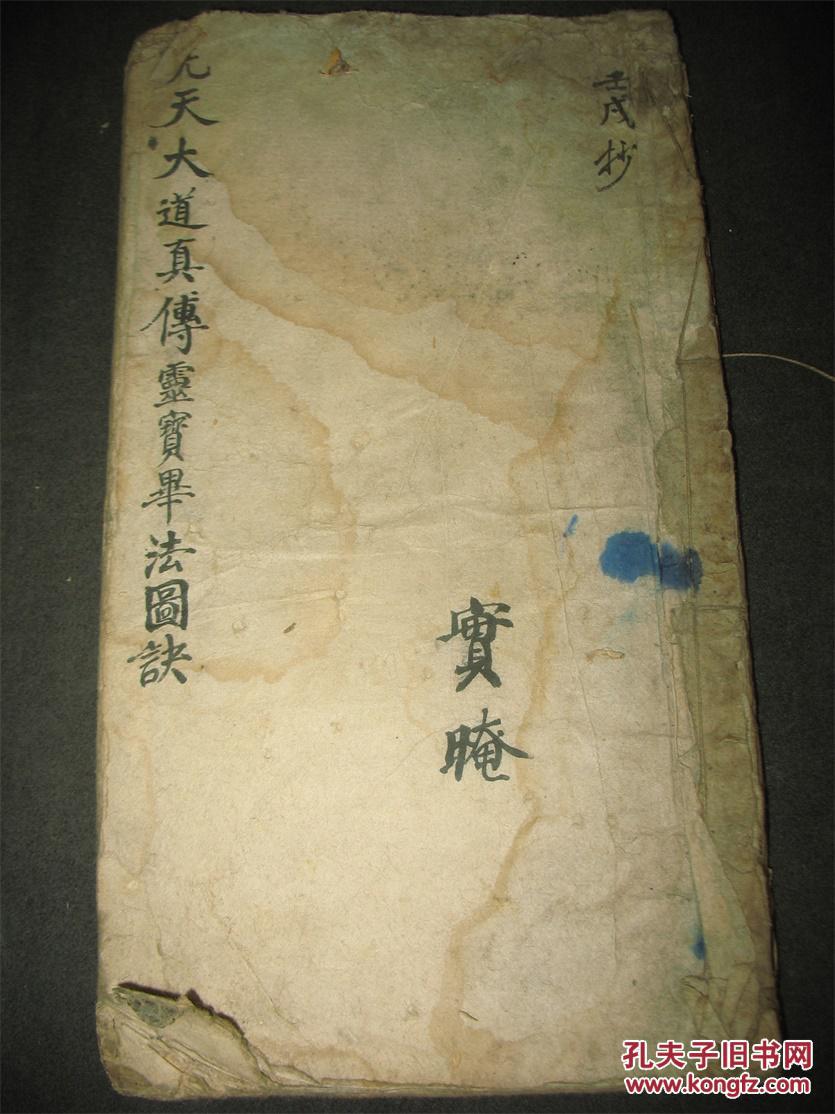 壬戌抄
實晻
天大道真傳靈寶畢法圖訣
孔夫子旧书网
www.kongfz.com